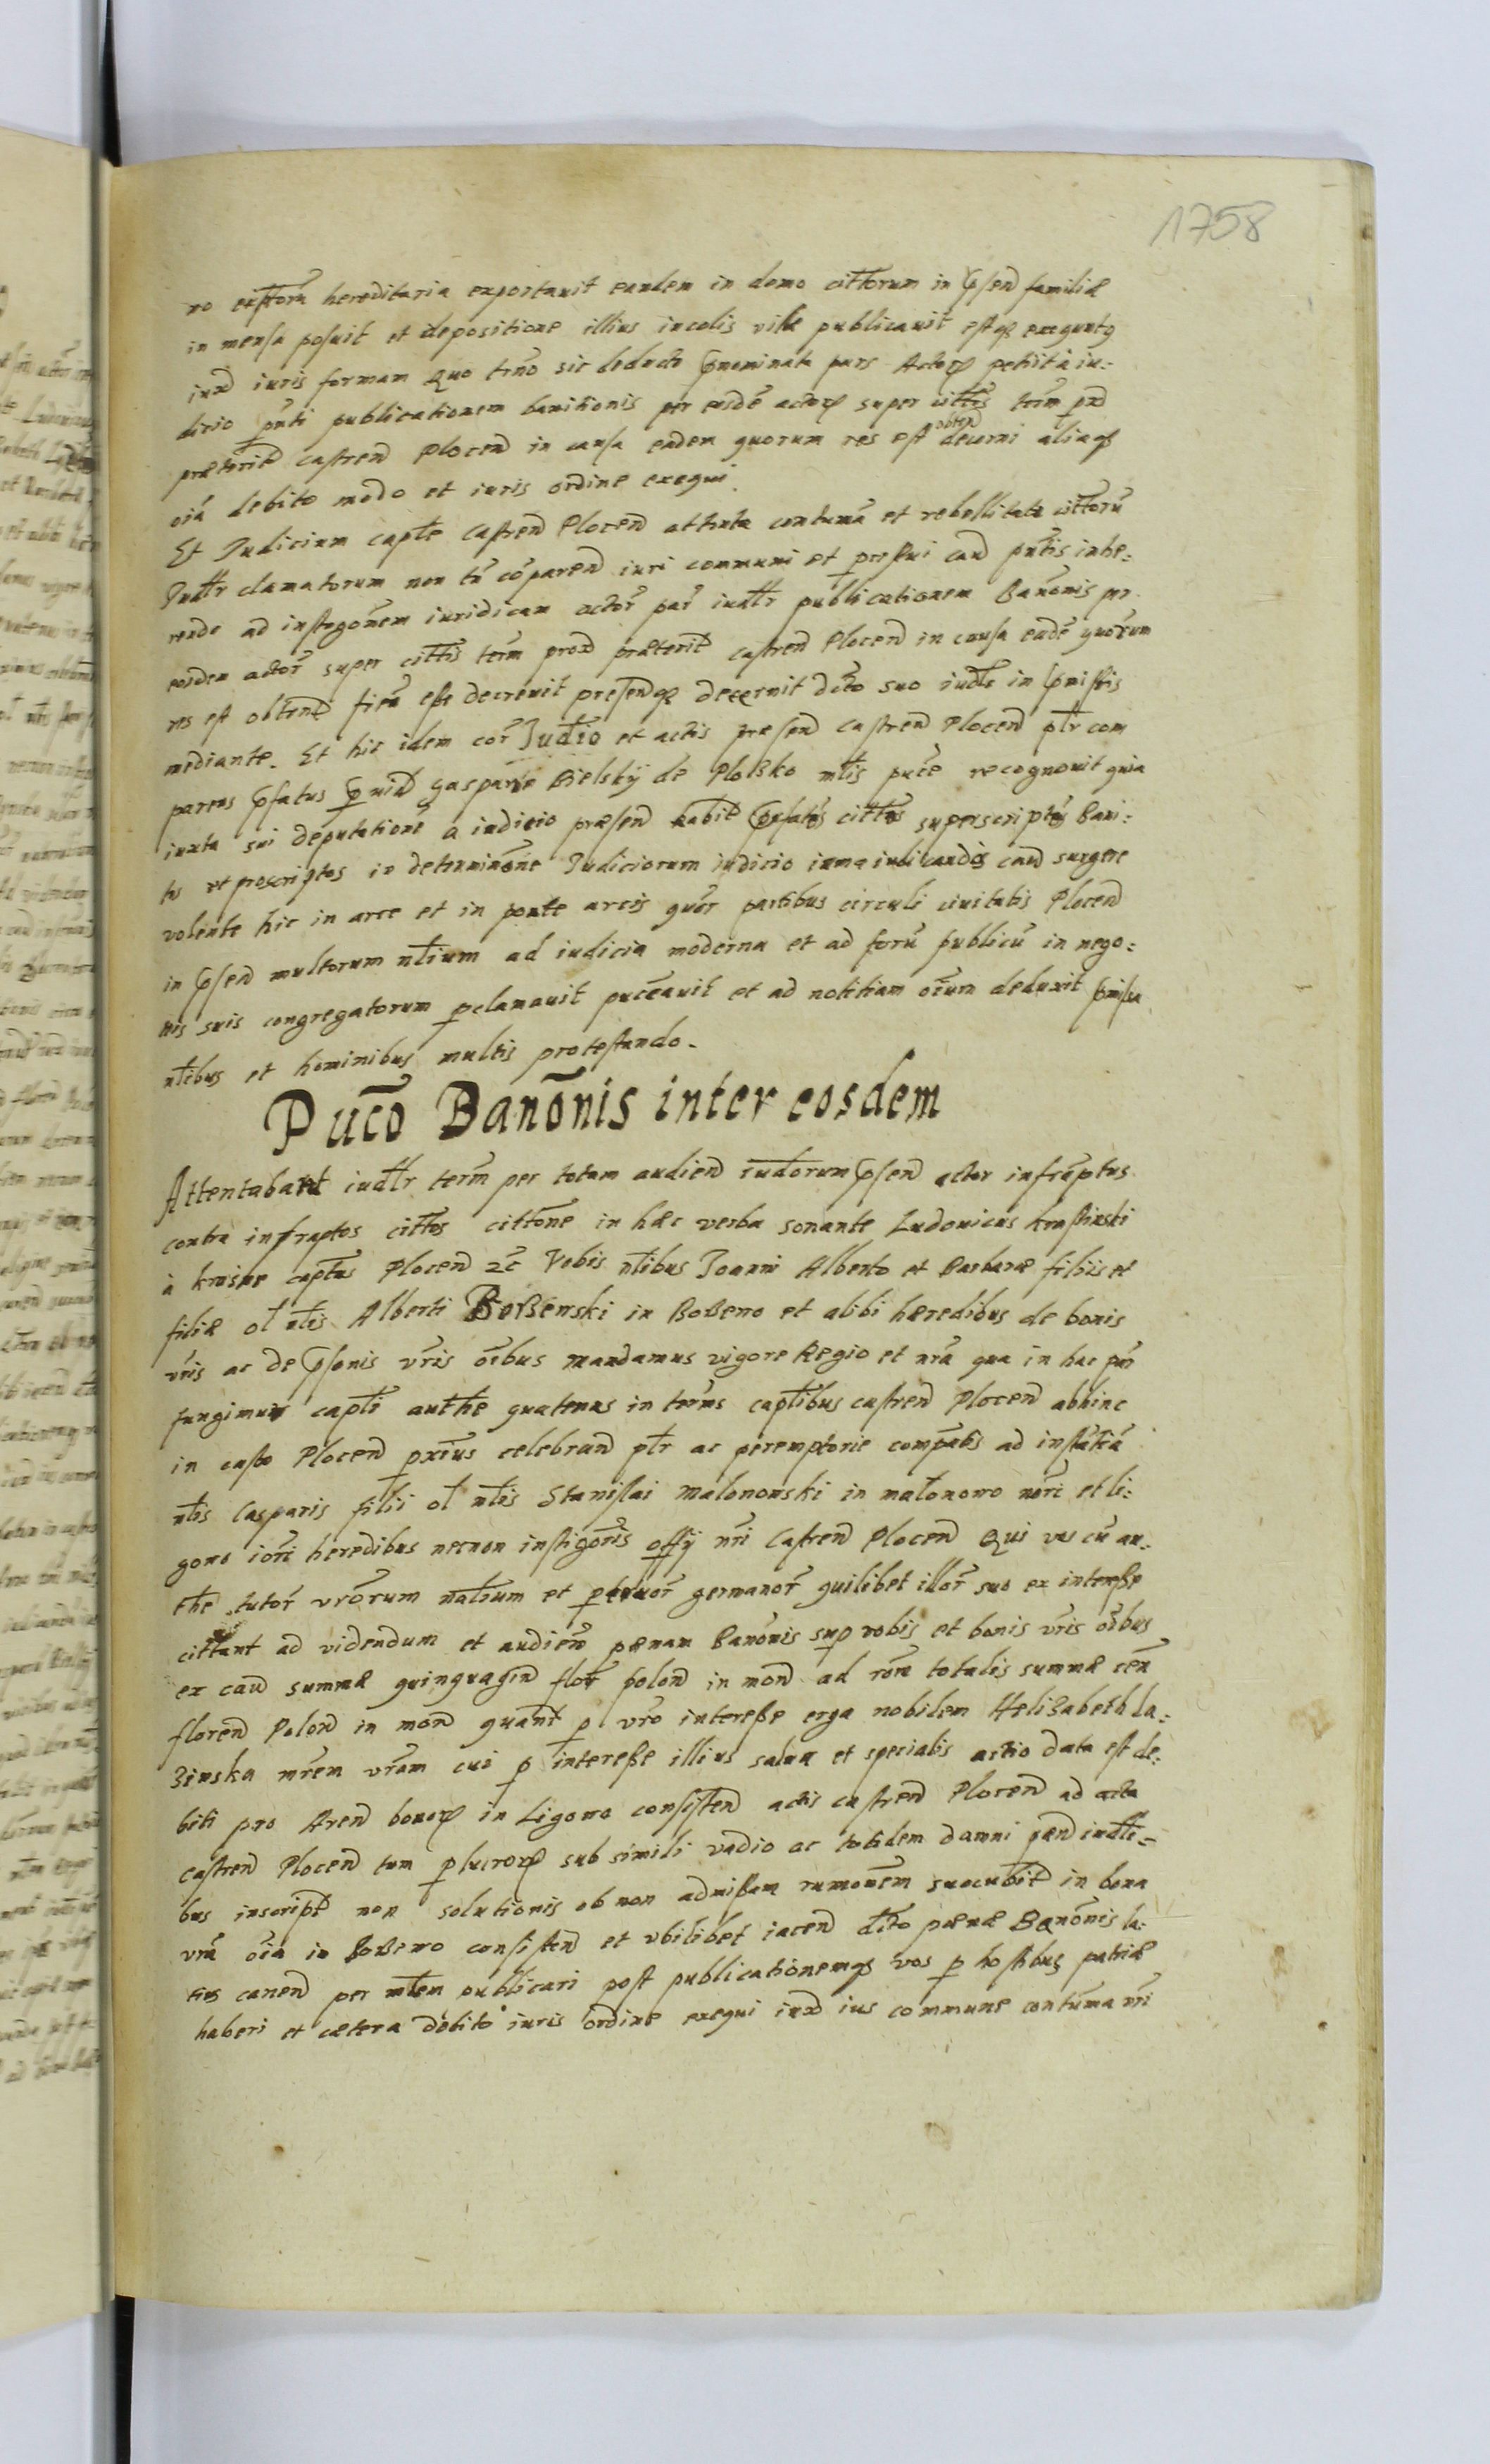 1758
no cittorũ hereditaria exportauit eandem in domo cittorum in p̃send familiæ
in mensa posuit et depositione illius incolis villæ publicauit estq̃
iuxᵈ iuris formam Quo trno sic deducto p̃nominata pars Actoȝ petiit à iu:
dicio pñti publicationem banitionis per eundẽ actorȝ super cittos trm prxᵈ
præterit castrenᵈ Plocenᵈ in causa eadem quorum res est obtenᵈ decerni aliaqȝ
oiá debito modo et iuris ordine exequi.
Et Judicium capłe Castrenᵈ Plocenᵈ attenta contumã et rebellitate cittorũ
Judłr clamatorum non tñ cõparenᵈ iuri communi et cauᵈ pñtis inhe:
rendo ad instigõnem iuridicam actoř pař iudłr publicationem Banõnis per
eosdem actoř super cittis term proxᵈ præterit castrenᵈ Plocenᵈ in causa eadẽ quorum
res est obtenᵈ fieri esse decreuit presenᵈqȝ decernit dcto suo iudłi in p̃missis
mediante. Et hic idem coř Judio et actis præsenᵈ Castrenᵈ Plocenᵈ płr com
parens p̃fatus p̃uidᵈ Gaspar Bielskij de Ploßko młis puce recognouit quia
iuxta sui deputationẽ a iudicio præsenᵈ habitᵈ p̃fatos cittos superscriptos Bani:
tos et proscriptos in determinõne Judiciorum iudicio iam iudicandis cauᵈ surgere
volente hic in arce et in ponte arcis quor partibus circuli ciuitatis Plocenᵈ
in p̃senᵈ multorum nłium ad iudicia moderna et ad forũ publicũ in nego:
tiis suis congregatorum p̃clamauit puceauit et ad notitiam oium deduxit p̃missa
nłibus et hominibus multis protestando.
Pucõ Banõnis inter eosdem
Attentabat iudłr term per totam audienᵈ iudiorum p̃senᵈ actor infraptus
contra infraptos cittos cittõne in hæc verba sonante Ludouicus Krasinski
à Krasne captus Plocenᵈ ꝛc Vobis nłibus Joanni Alberto et Barbaræ filiis et
filiæ oł nłis Alberti Boßewski in Boßewo et alibi hæredibus de bonis
vris ac de p̃sonis vris oĩbus mandamus vigore Regio et nrã qua in hac pař
fungimur capłi autthe quatenus in trnis capłibus castrenᵈ Plocenᵈ abhinc
in casto Plocenᵈ pxius celebranᵈ płr ac peremptorie compareatis ad instãtiã
nłis Casparis filii oł nłis Stanislai Malonowski in Małonowo nõri et li:
gowo iõri heredibus necnon instigõris offij nri Castrenᵈ Plocenᵈ Qui vos cũ au:
the tutoř vrõrum nałium et germanoř quilibet illoř suo ex interesse
cittant ad videndum et audienᵈ pænam Banõnis sup vobis et bonis vris oĩbus
ex cauᵈ summæ quinquaginᵈ flor polonᵈ in monᵈ ad rõnẽ totalis summæ cen
florenᵈ Polonᵈ in monᵈ quant p vro interesse erga nobilem Helisabeth La:
zinska mrem vram cui p interesse illius salua et specialis actio data est de:
biti pro Arenᵈ bonorȝ in Ligowo consistenᵈ actis castrenᵈ Plocenᵈ ad acta
castrenᵈ Plocenᵈ tum p lucrorȝ sub simili vadio ac totidem damni pænᵈ iudłi:
bus inscript non solutionis ob non admissam rumõnem succubitᵈ in bona
vrã oĩa in Boßewo consistenᵈ et vbilibet iacenᵈ dcto pænæ Banõnis la:
tius canenᵈ per młem publicari post publicationemqȝ vos p hostibus patriæ
haberi et cætera debito iuris ordine exequi iuxᵈ ius commune contuma nri